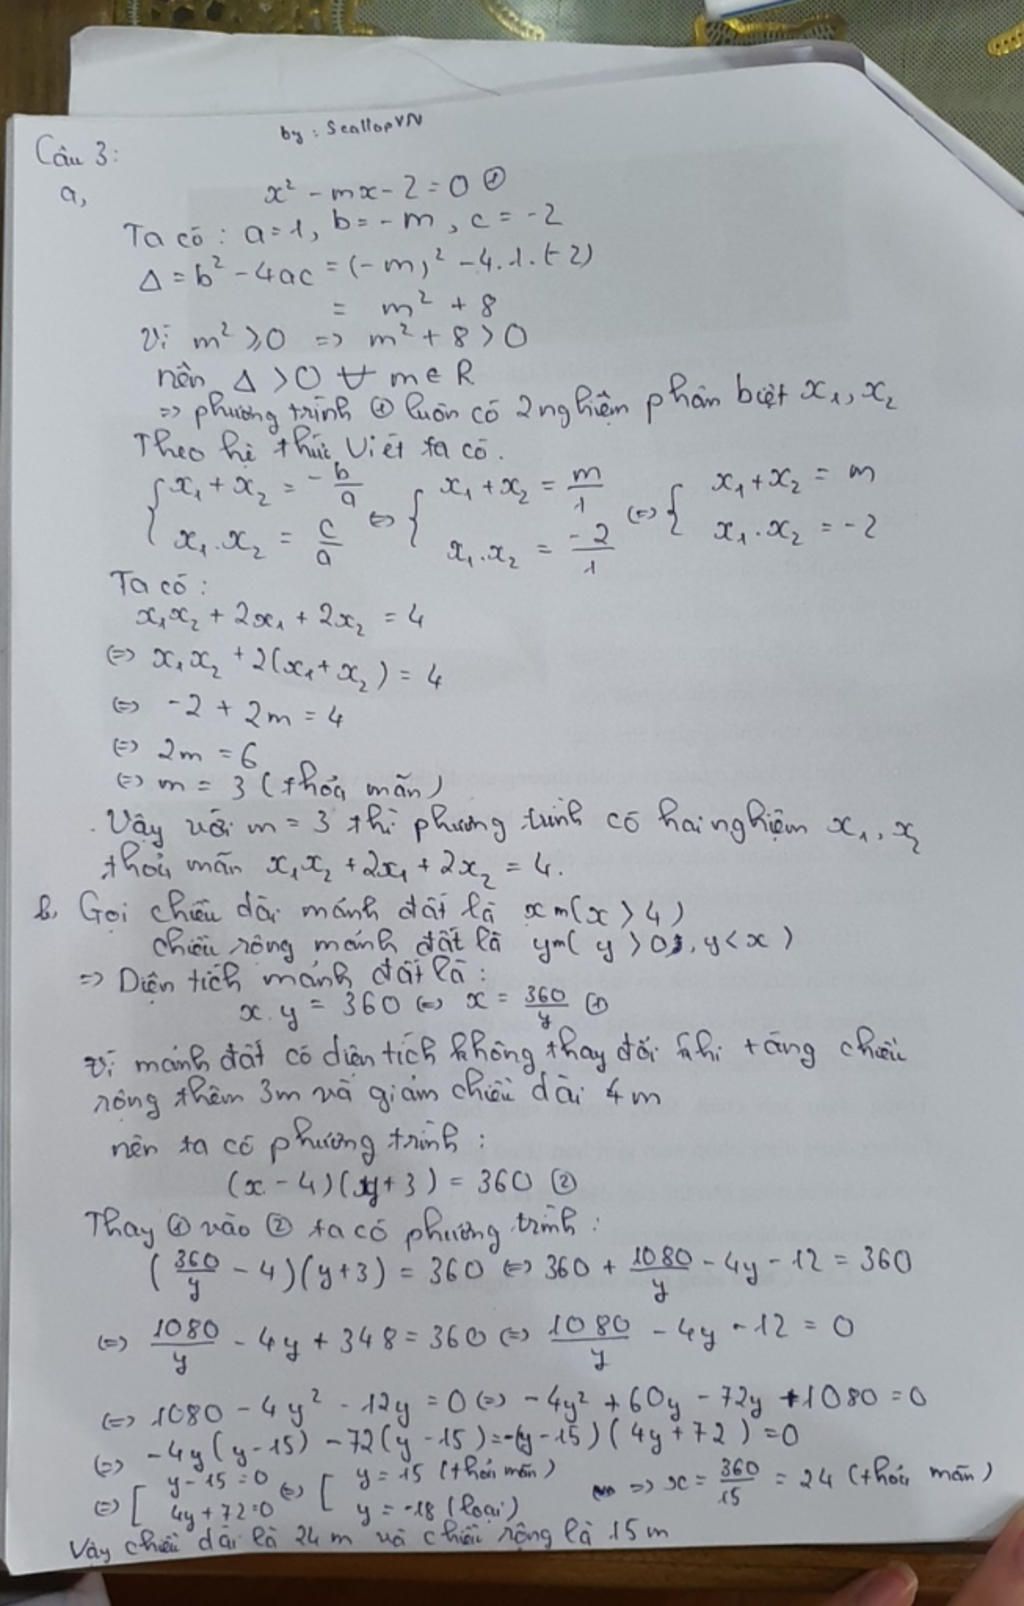 by: ScallopVN
Câu 3:
a, x² - mx - 2 = 0 ①
Ta có: a = 1, b = - m, c = -2
Δ = b² - 4ac = (-m)² - 4.1.(-2)
= m² + 8
Vì m² ⩾ 0 => m² + 8 > 0
nên Δ > 0 ∀ m ∈ R
=> phương trình ① luôn có 2 nghiệm phân biệt x₁, x₂
Theo hệ thức Viét ta có.
{ x₁ + x₂ = -b/a ; x₁.x₂ = c/a <=> { x₁ + x₂ = m/1 ; x₁.x₂ = -2/1 <=> { x₁ + x₂ = m ; x₁.x₂ = -2
Ta có:
x₁x₂ + 2x₁ + 2x₂ = 4
<=> x₁x₂ + 2(x₁ + x₂) = 4
<=> -2 + 2m = 4
<=> 2m = 6
<=> m = 3 (thỏa mãn)
Vậy với m = 3 thì phương trình có hai nghiệm x₁, x₂
thỏa mãn x₁x₂ + 2x₁ + 2x₂ = 4.
b, Gọi chiều dài mảnh đất là x m (x > 4)
chiều rộng mảnh đất là y m ( y > 0, y < x )
=> Diện tích mảnh đất là:
x.y = 360 <=> x = 360/y ①
Vì mảnh đất có diện tích không thay đổi khi tăng chiều
rộng thêm 3m và giảm chiều dài 4m
nên ta có phương trình:
(x - 4)(y + 3) = 360 ②
Thay ① vào ② ta có phương trình:
(360/y - 4)(y + 3) = 360 <=> 360 + 1080/y - 4y - 12 = 360
<=> 1080/y - 4y + 348 = 360 <=> 1080/y - 4y - 12 = 0
<=> 1080 - 4y² - 12y = 0 <=> -4y² + 60y - 72y + 1080 = 0
<=> -4y(y - 15) - 72(y - 15) = -(y - 15)(4y + 72) = 0
<=> [ y - 15 = 0 ; 4y + 72 = 0 <=> [ y = 15 (thỏa mãn) ; y = -18 (loại) => x = 360/15 = 24 (thỏa mãn)
Vậy chiều dài là 24 m và chiều rộng là 15 m